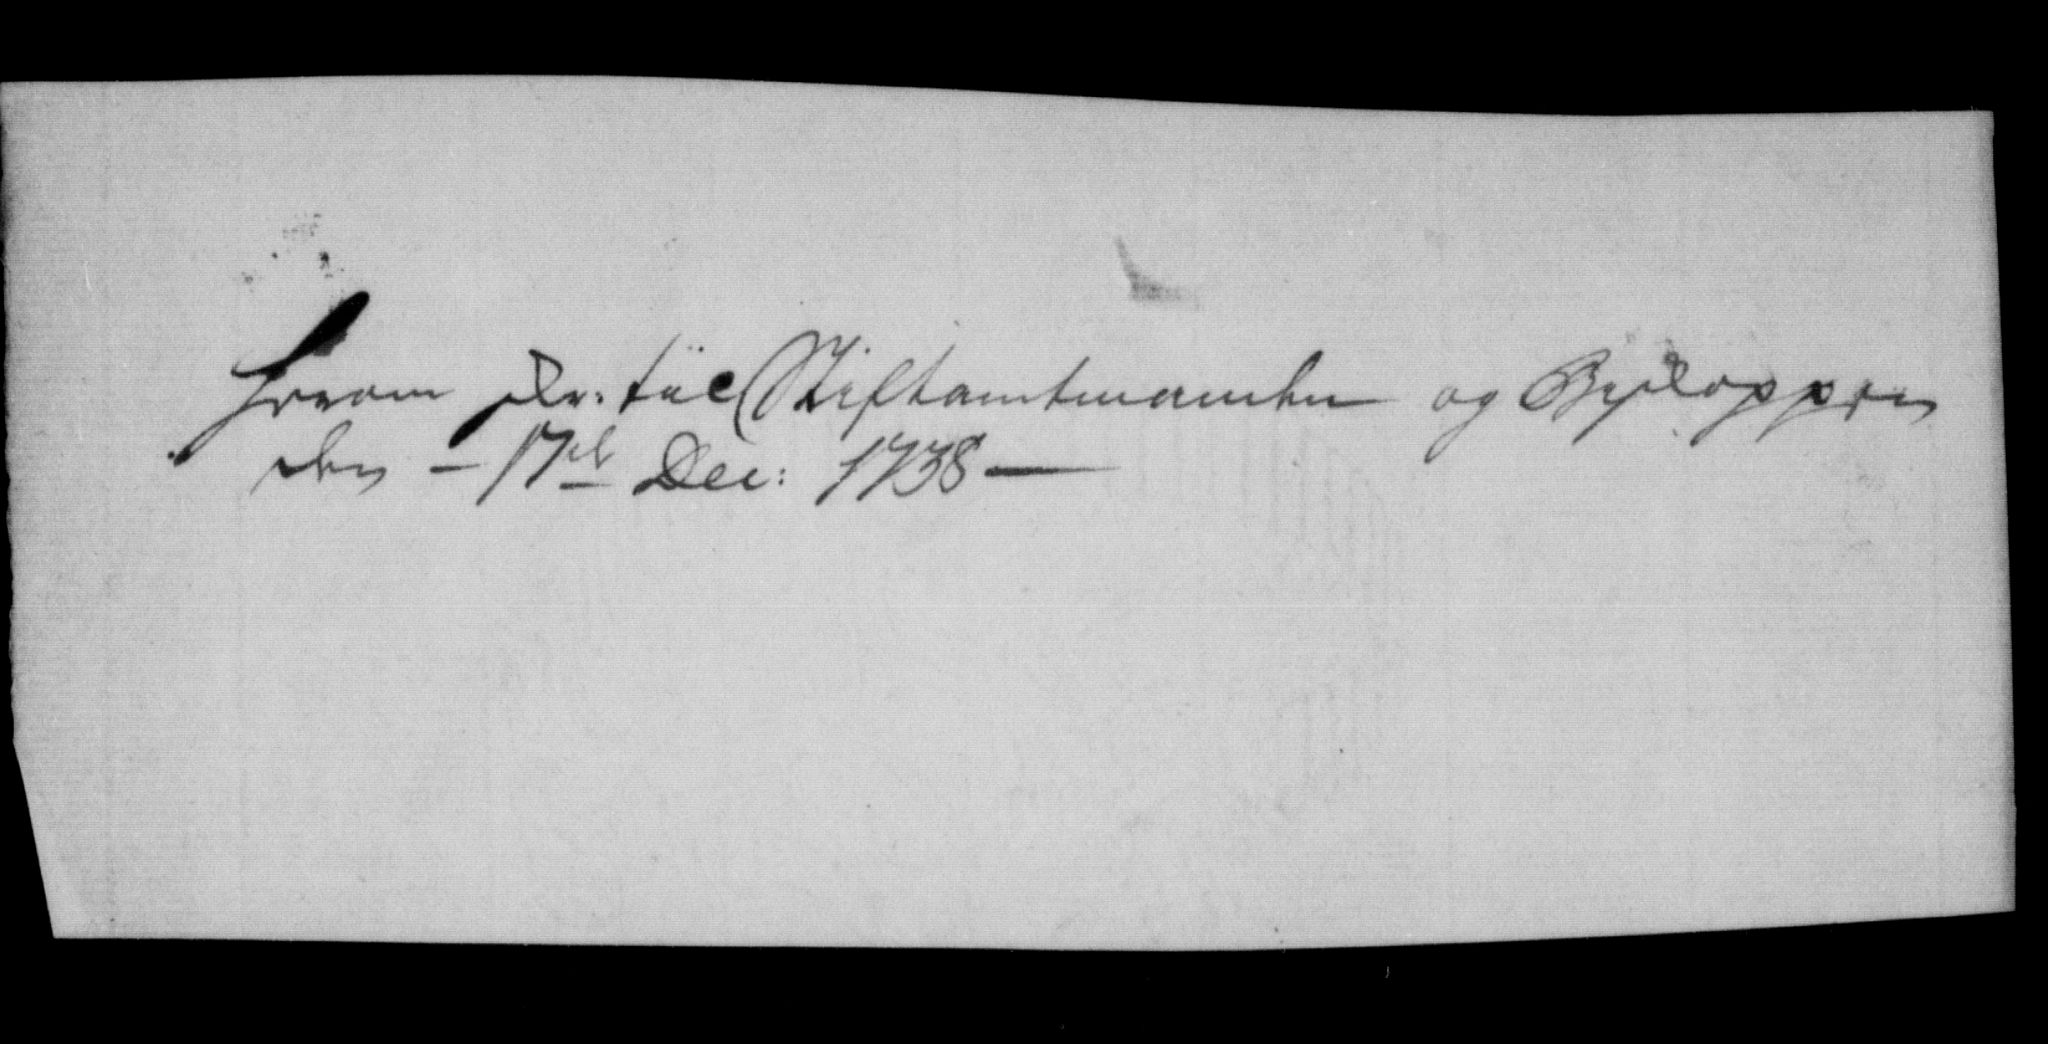 Hvorom skr: til Stiftamtmanden og Byskoppen
den - 17de Dec: 1738 -